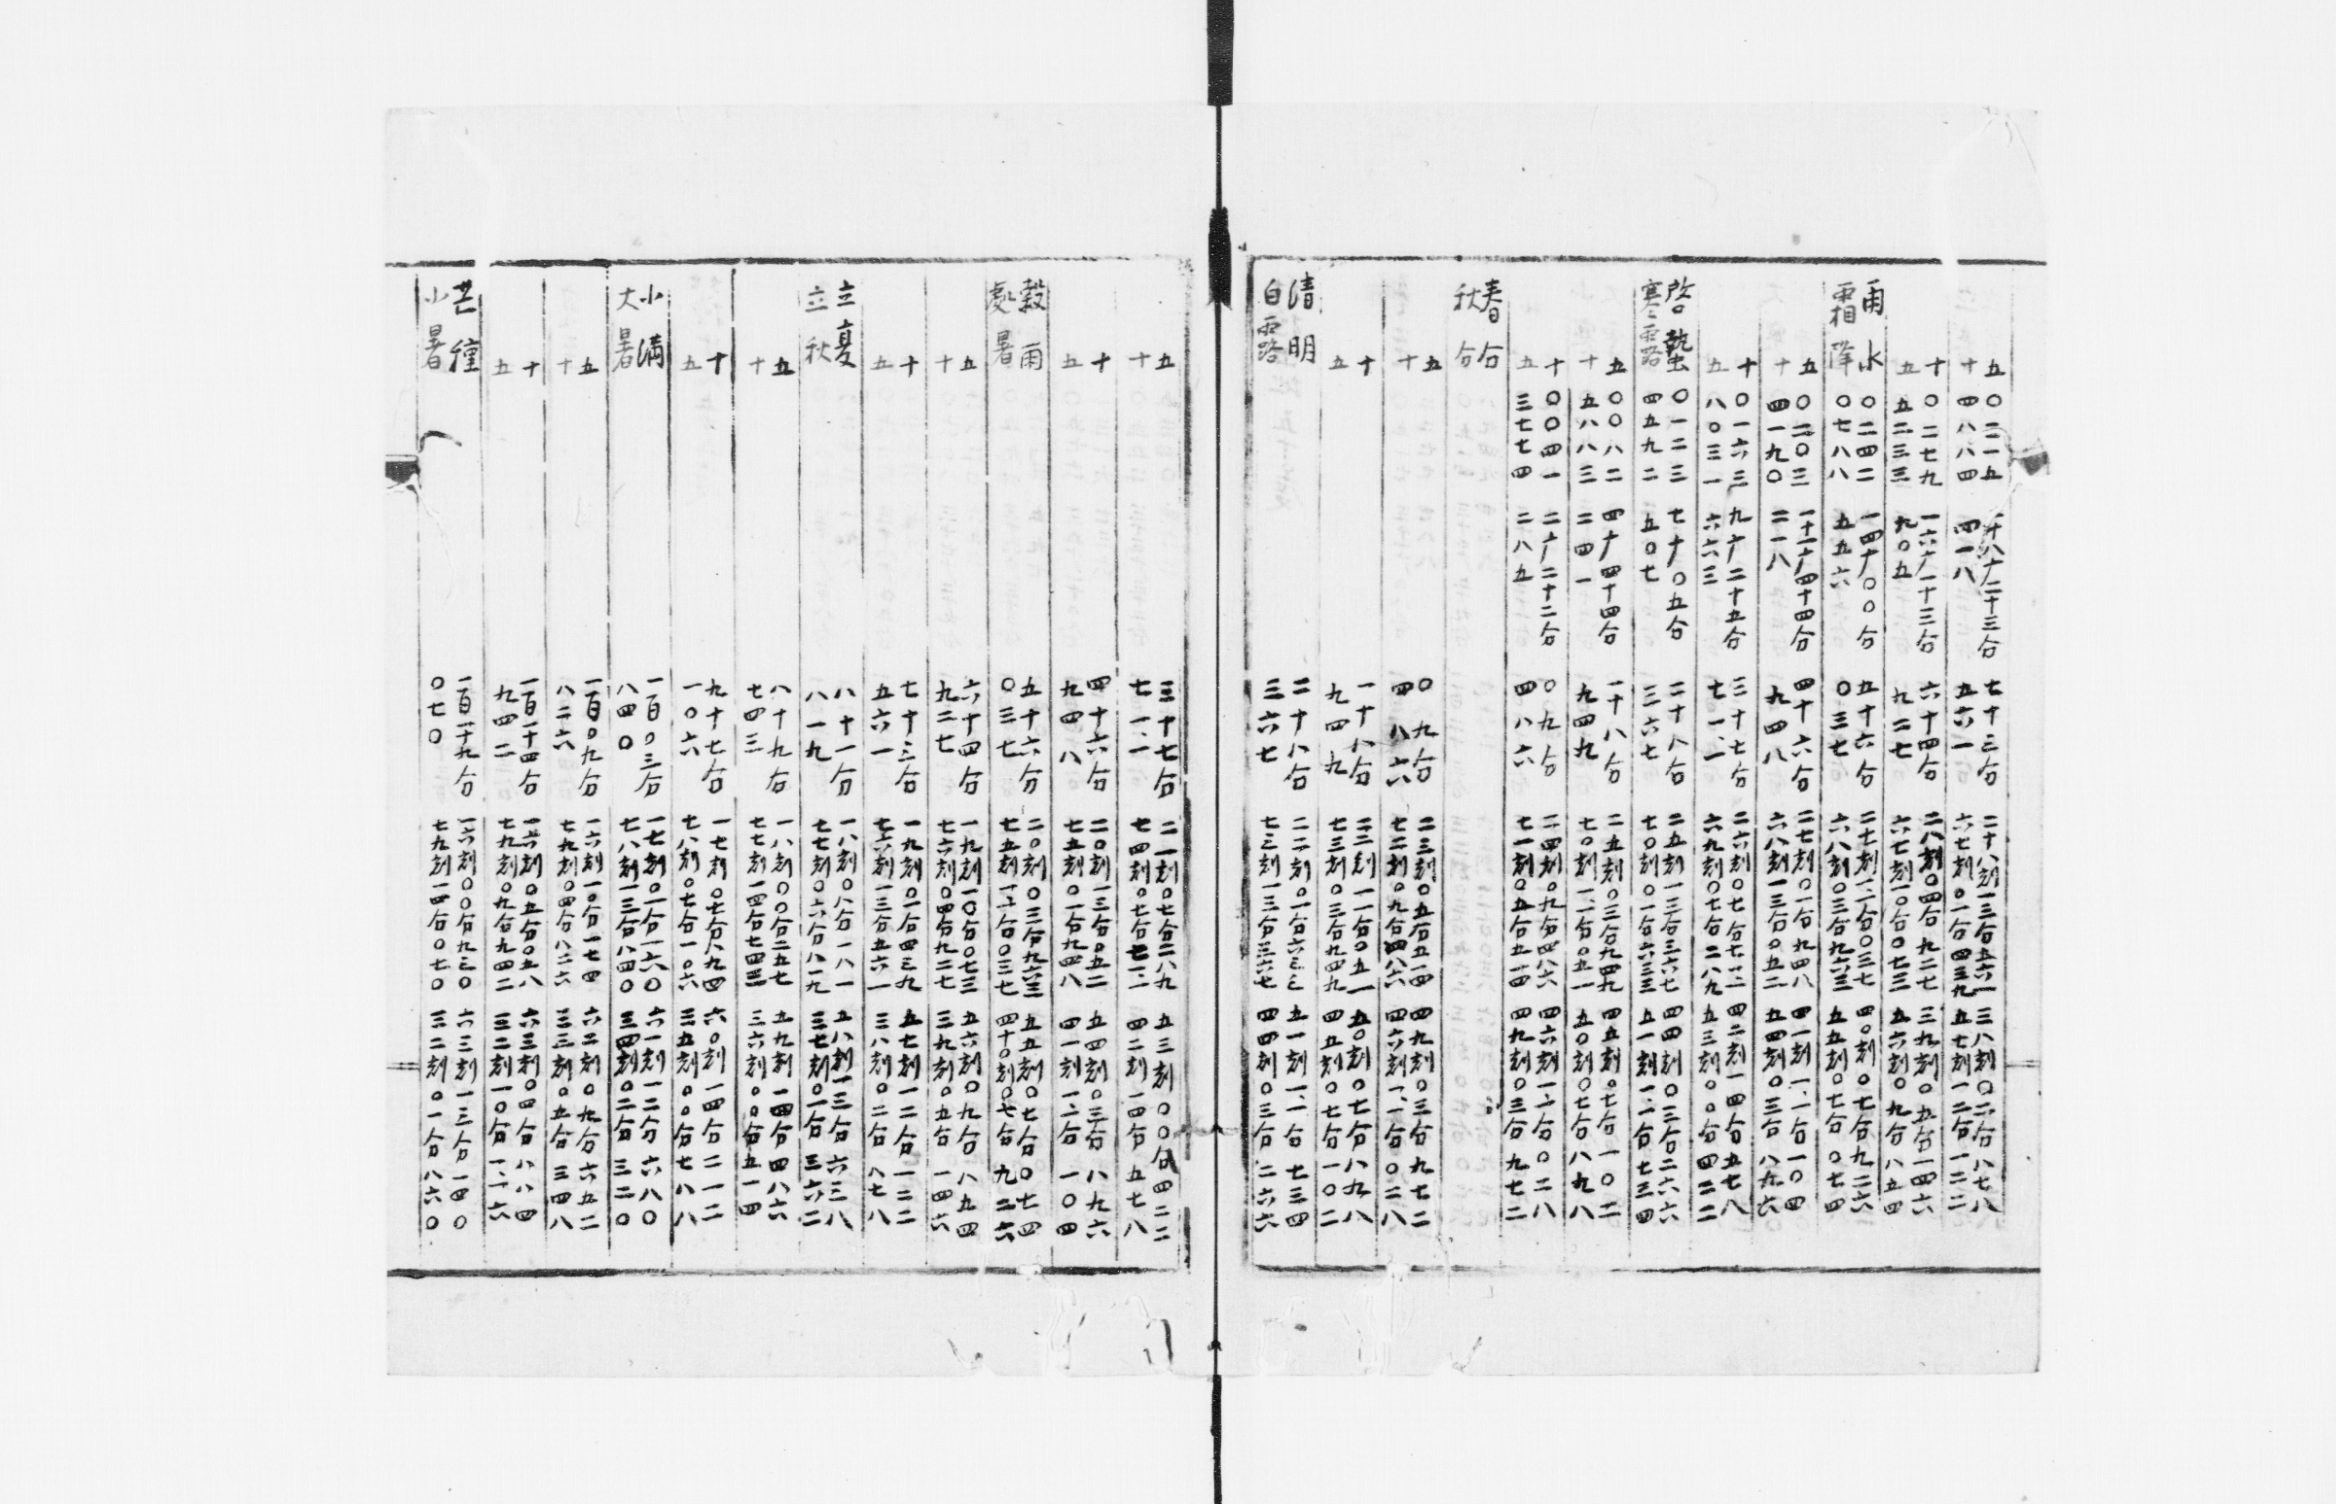 五 〇二一五 一十八广二十三分 七十三分 二十八刻一三分五六一 三八刻〇二分八七八
十 四八八四 四一八 五六一 六七刻〇一分四三九 五七刻一二分一二二
十 〇二七九 一六广一十三分 六十四分 二八刻〇四分九二七 三九刻〇五分一四六
五 五二三三 九〇五 九二七 六七刻一〇分〇七三 五六刻〇九分八五四
雨水 〇二四二 一四广〇〇分 五十六分 二七刻一一分〇三七 四〇刻〇七分九二六
霜降 〇七八八 五五六 〇三七 六八刻〇三分九六三 五五刻〇七分〇七四
五 〇二〇三 一十一广四十四分 四十六分 二七刻〇一分九四八 四一刻一一分一〇四
十 四一九〇 二一八 九四八 六八刻一三分〇五二 五四刻〇三分八九六
十 〇一六三 九广二十五分 三十七分 二六刻〇七分七一一 四二刻一四分五七八
五 八〇三一 六六三 七一一 六九刻〇七分二八九 五三刻〇〇分四二二
啓蟄 〇一二三 七广〇五分 二十八分 二五刻一三分三六七 四四刻〇三分二六六
寒露 四五九二 五〇七 三六七 七〇刻〇一分六三三 五一刻一一分七三四
五 〇〇八二 四广四十四分 一十八分 二五刻〇三分九四九 四五刻〇七分一〇二
十 五八八三 二四一 九四九 七〇刻一一分〇五一 五〇刻〇七分八九八
十 〇〇四一 二广二十二分 〇九分 二四刻〇九分四八六 四六刻一一分〇二八
五 三七七四 二八五 四八六 七一刻〇五分五一四 四九刻〇三分九七二
春分
秋分
五 〇九分 二三刻〇五分五一四 四九刻〇三分九七二
十 四八六 七二刻〇九分四八六 四六刻一一分〇二八
十 一十八分 二三刻一一分〇五一 五〇刻〇七分八九八
五 九四九 七三刻〇三分九四九 四五刻〇七分一〇二
清明 二十八分 二二刻〇一分六三三 五一刻一一分七三四
白露 三六七 七三刻一三分三六七 四四刻〇三分二六六
五 三十七分 二一刻〇七分二八九 五三刻〇〇分四二二
十 七一一 七四刻〇七分七一一 四二刻一四分五七八
十 四十六分 二〇刻一三分〇五二 五四刻〇三分八九六
五 九四八 七五刻〇一分九四八 四一刻一一分一〇四
穀雨 五十六分 二〇刻〇三分九六三 五五刻〇七分〇七四
處暑 〇三七 七五刻一一分〇三七 四十〇刻〇七分九二六
五 六十四分 一九刻一〇分〇七三 五六刻〇九分八五四
十 九二七 七六刻〇四分九二七 三九刻〇五分一四六
十 七十三分 一九刻〇一分四三九 五七刻一二分一二二
五 五六一 七六刻一三分五六一 三八刻〇二分八七八
立夏 八十一分 一八刻〇八分一八一 五八刻一三分六三八
立秋 八一九 七七刻〇六分八一九 三七刻〇一分三六二
五 八十九分 一八刻〇〇分二五七 五九刻一四分四八六
十 七四三 七七刻一四分七四三 三六刻〇〇分五一四
十 九十七分 一七刻〇七分八九四 六〇刻一四分二一二
五 一〇六 七八刻〇七分一〇六 三五刻〇〇分七八八
小滿 一百〇三分 一七刻〇一分一六〇 六一刻一二分六八〇
大暑 八四〇 七八刻一三分八四〇 三四刻〇二分三二〇
五 一百〇九分 一六刻一〇分一七四 六二刻〇九分六五二
十 八二六 七九刻〇四分八二六 三三刻〇五分三四八
十 一百一十四分 一六刻〇五分〇五八 六三刻〇四分八八四
五 九四二 七九刻〇九分九四二 三二刻一〇分一一六
芒種 一百一十九分 一六刻〇〇分九三〇 六三刻一三分一四〇
小暑 〇七〇 七九刻一四分〇七〇 三二刻〇一分八六〇